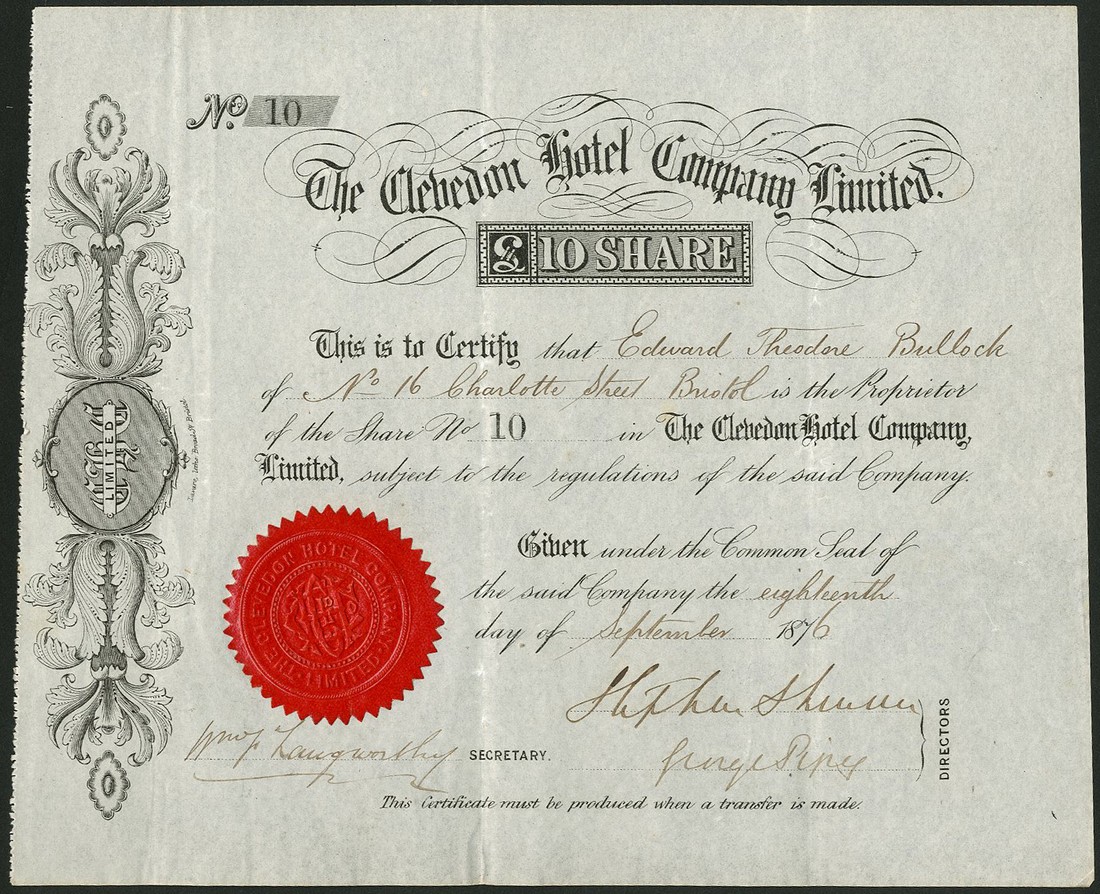 No. 10
The Clevedon Hotel Company Limited.
£10 SHARE
This is to Certify that Edward Theodore Bullock
of No 16 Charlotte Street Bristol is the Proprietor
of the Share No 10 in The Clevedon Hotel Company,
Limited, subject to the regulations of the said Company.
Given under the Common Seal of
the said Company the eighteenth
day of September 1876
THE CLEVEDON HOTEL COMPANY LIMITED
LIMITED
Stephen
George
DIRECTORS
Langworthy SECRETARY.
This Certificate must be produced when a transfer is made.